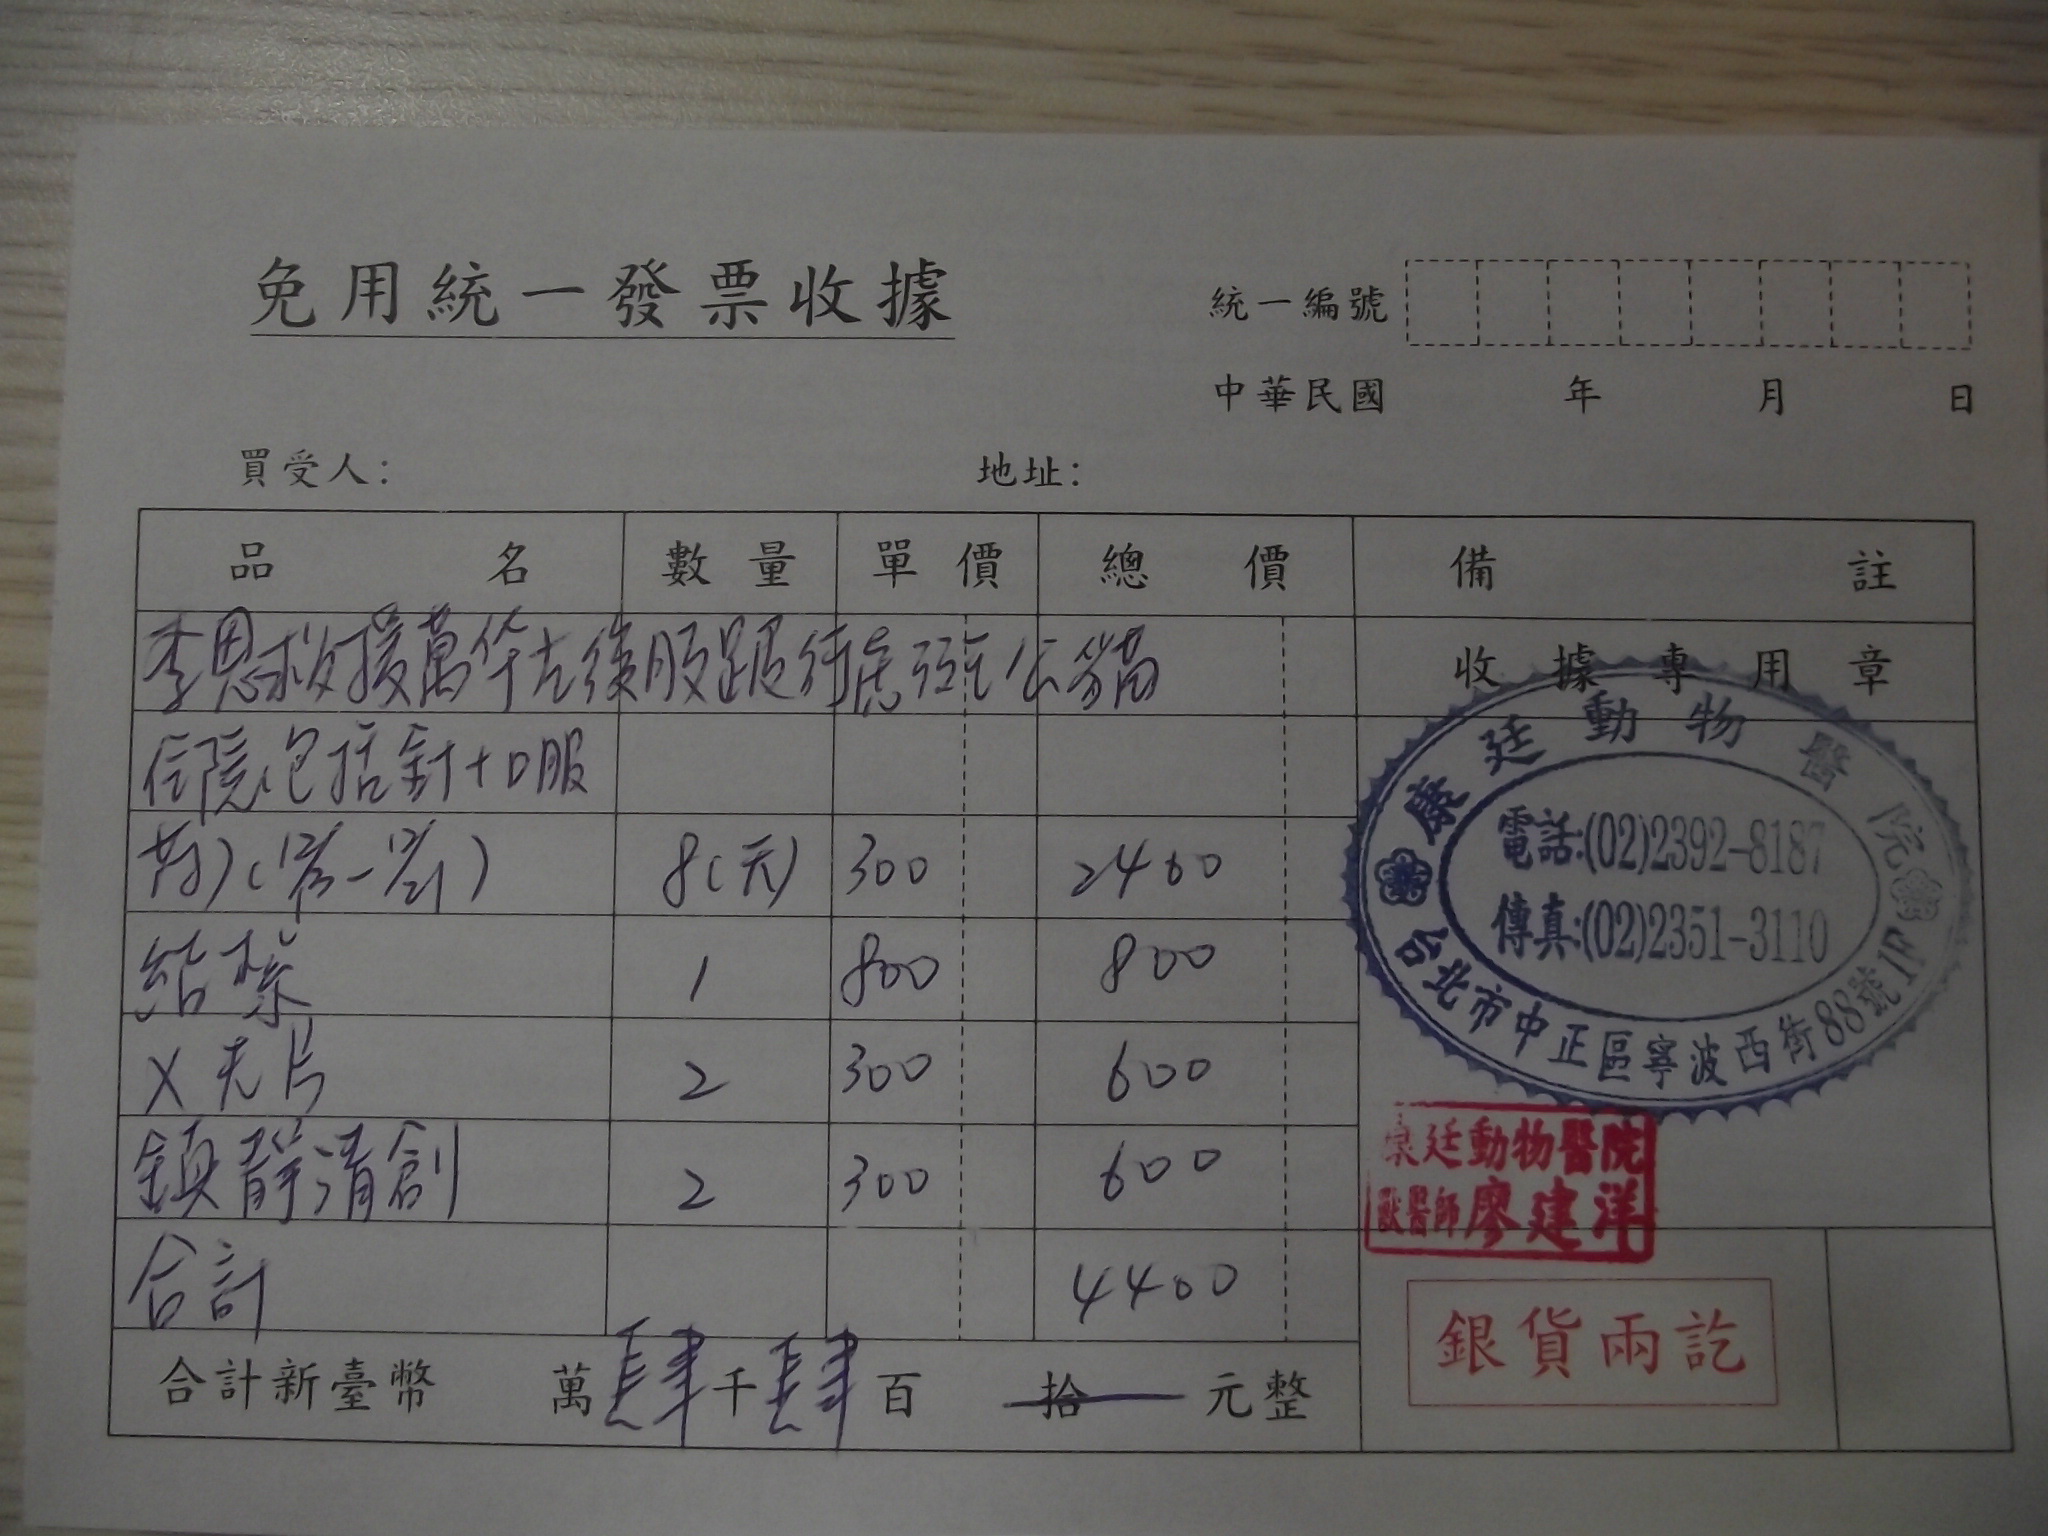 免用統一發票收據
統一編號
中華民國 年 月 日
買受人: 地址:
品名 數量 單價 總價 備註
李思救援萬华左後肢跛行虎斑公貓
收據專用章
住院(包括針+口服
药)(12/13-12/21) 8(天) 300 2400
結紮 1 800 800
X光片 2 300 600
鎮靜清創 2 300 600
合計 4400
合計新臺幣 萬肆千肆百 拾 元整
康廷動物醫院
電話:(02)2392-8187
傳真:(02)2351-3110
台北市中正區寧波西街88號1F
康廷動物醫院
獸醫師廖建洋
銀貨兩訖